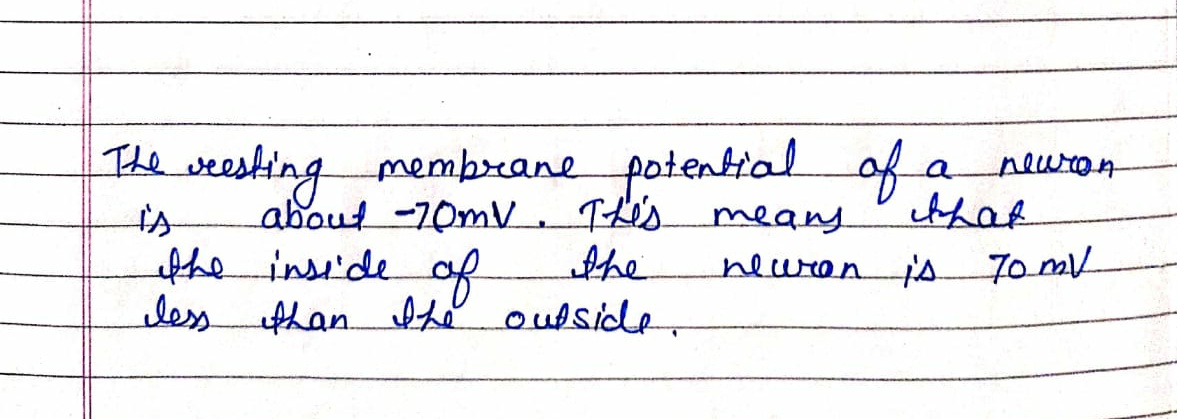 The resting membrane potential of a neuron
is about -70mV. This means that
the inside of the neuron is 70 mV
less than the outside.